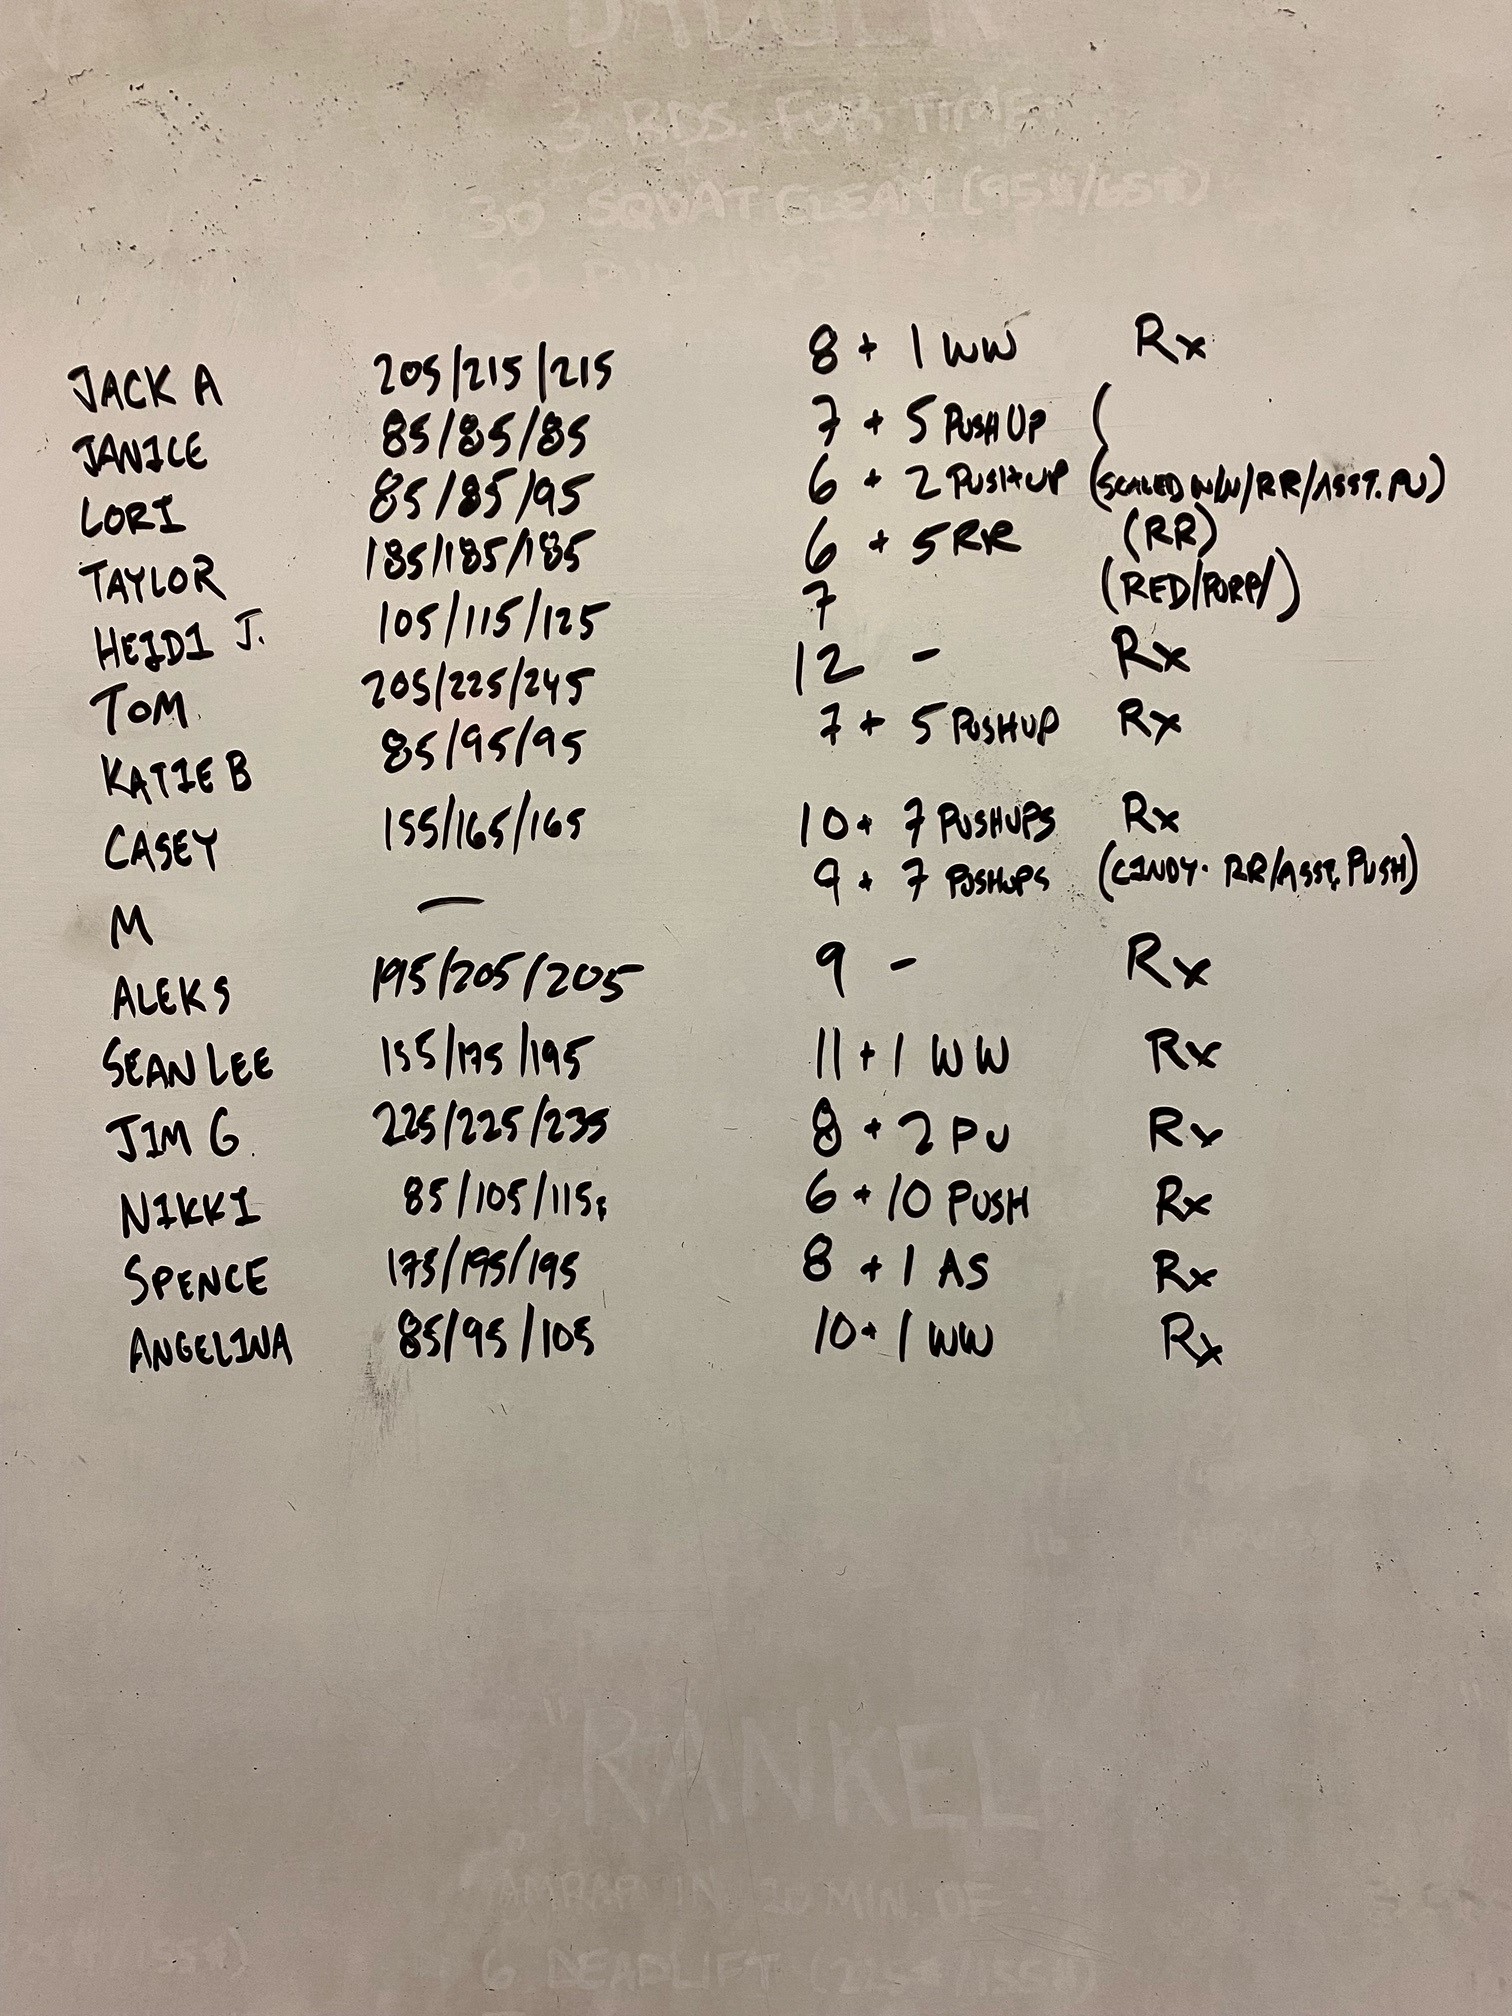 3 RDS. FOR TIME
30 SQUAT CLEAN (95#/65#)
30
JACK A 205/215/215 8 + 1 WW Rx
JANICE 85/85/85 7 + 5 PUSHUP (
LORI 85/85/95 6 + 2 PUSHUP (SCALED W/W/RR/ASST. PU)
TAYLOR 185/185/185 6 + 5 RR (RR)
HEIDI J. 105/115/125 7 (RED/PURP/)
TOM 205/225/245 12 - Rx
KATIE B 85/95/95 7 + 5 PUSHUP Rx
CASEY 155/165/165 10 + 7 PUSHUPS Rx
M — 9 + 7 PUSHUPS (CINDY- RR/ASST. PUSH)
ALEKS 195/205/205 9 - Rx
SEAN LEE 155/175/195 11 + 1 WW Rx
JIM G 225/225/235 8 + 2 PU Rx
NIKKI 85/105/115 6 + 10 PUSH Rx
SPENCE 175/195/195 8 + 1 AS Rx
ANGELINA 85/95/105 10 + 1 WW Rx
"RANKEL"
AMRAP IN 20 MIN. OF:
6 DEADLIFT (225#/155#)